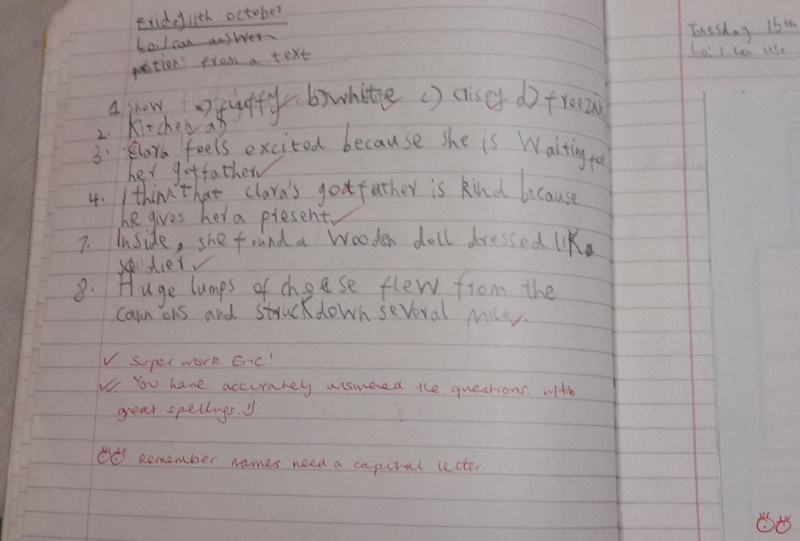 Friday 11th october
Lo: I can answer
from a text
Tuesday 15th
Lo: I can use
1 snow a) fluffy b) white c) crispy d) frozen
2. Kitchen
3. Clara feels excited because she is Waiting for
her gotfather
4. I think that clara's godfather is kind because
he gives her a present.
7. Inside, she found a Wooden doll dressed like a
soldier
8. Huge lumps of cheese flew from the
cannons and struck down several mice.
Super work Eric!
You have accurately answered the questions with
great spellings!
Remember names need a capital letter.